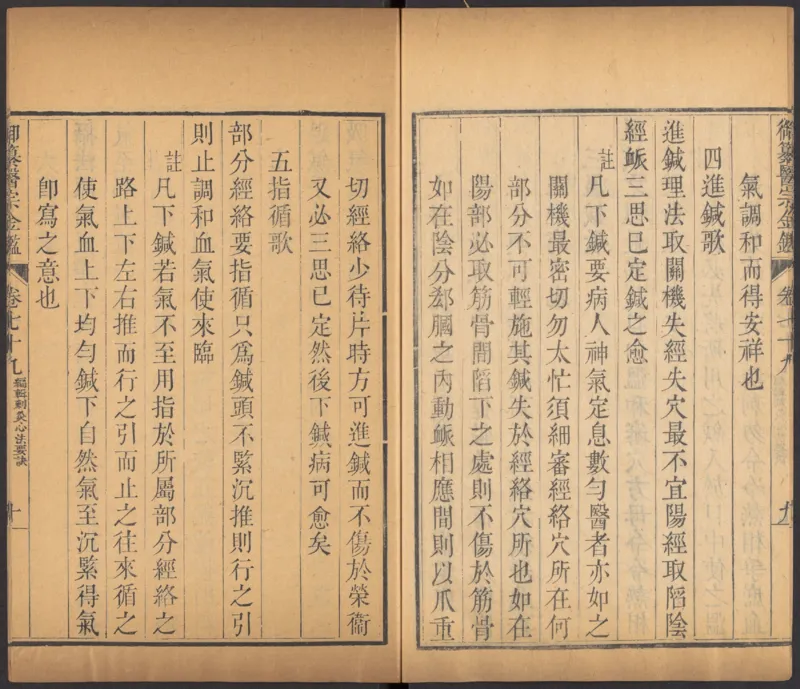 御纂醫宗金鑑
卷七十九
九
氣調和而得安祥也
四進鍼歌
進鍼理法取關機失經失穴最不宜陽經取陷陰
經脈三思已定鍼之愈
註凡下鍼要病人神氣定息數勻醫者亦如之
關機最密切勿太忙須細審經絡穴所在何
部分不可輕施其鍼失於經絡穴所也如在
陽部必取筋骨間陷下之處則不傷於筋骨
如在陰分郄膕之內動脈相應間則以爪重
切經絡少待片時方可進鍼而不傷於榮衞
又必三思已定然後下鍼病可愈矣
五指循歌
部分經絡要指循只爲鍼頭不緊沉推則行之引
則止調和血氣使來臨
註凡下鍼若氣不至用指於所屬部分經絡之
路上下左右推而行之引而止之往來循之
使氣血上下均勻鍼下自然氣至沉緊得氣
卽寫之意也
御纂醫宗金鑑
卷七十九 編輯刺灸心法要訣
十